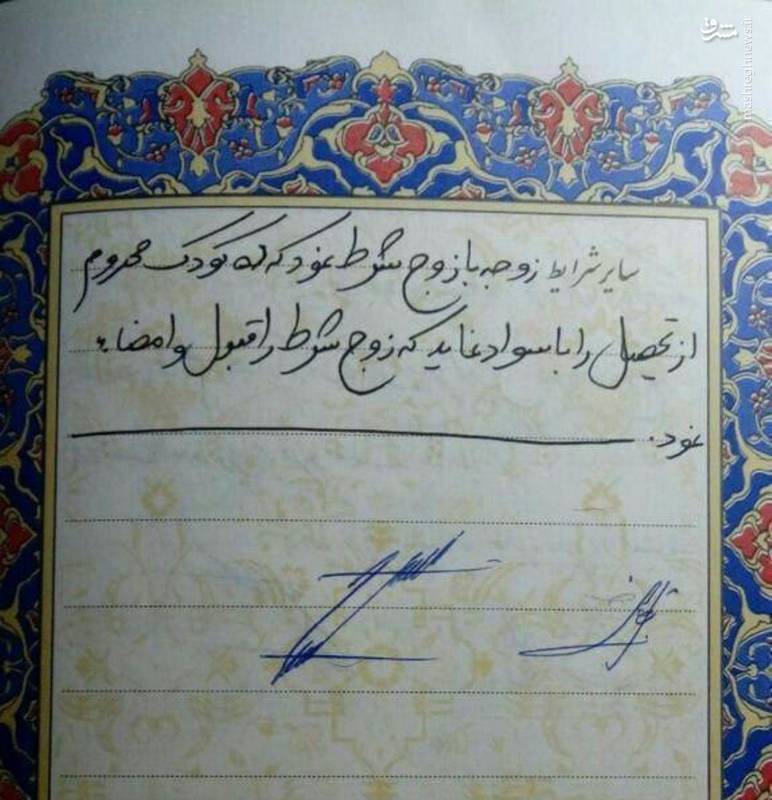 مشرق
mashreghnews.ir
سایر شرایط زوجه با زوج شرط نمود که ده کودک محروم
از تحصیل را باسواد نماید که زوج شرط را قبول و امضاء
نمود.